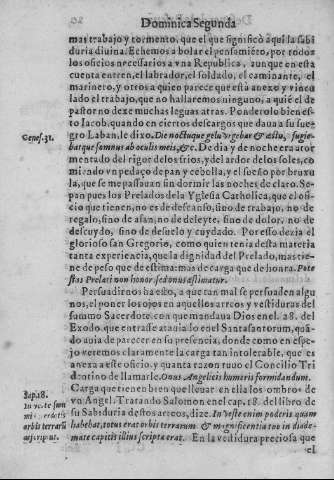 Dominica Segunda
mas trabajo y tormento, que el que significò aqui la sabi
duria diuina. Echemos a bolar el pensamiẽto, por todos
los oficios necesarios a vna Republica, aunque en esta
cuenta entren, el labrador, el soldado, el caminante, el
marinero, y otros a quien parece que està anexo y vincu
lado el trabajo, que no hallaremos ninguno, a quiẽ el de
pastor no deze muchas leguas atras. Ponderolo bien sto
Iacob, quando en ciertos descargos que daua a su sue-
Genes. 31.
gro Laban, le dixo. Die noctuque gelu vrgebar & æstu, fugie-
batque somnus ab oculis meis, &c. De dia y de noche era ator
mentado del rigor de los frios, y del ardor de los soles, co
mi rado vn pedaço de pan y cebolla, y el sueño por bruxu
la, que se me passauan sin dormir las noches de claro. Se-
pan pues los Prelados de la Yglesia Catholica, que el ofi-
cio que tienen, no es de descanso, sino de trabajo, no de
regalo, sino de afan, no de deleyte, sino de dolor, no de
descuydo, sino de desuelo y cuydado. Por esso dezia el
glorioso san Gregorio, como quien tenia desta materia
tanta experiencia, que la dignidad del Prelado, mas tie-
ne de peso que de estima: mas de carga que de honra. Pote
stas Prelati non honor, sed onus æstimatur.
Persuadirnos ha esto, a que tan mal se persuaden algu
nos, el poner los ojos en aquellos arreos y vestiduras del
summo Sacerdote, con que mandaua Dios en el. 28. del
Exodo, que entrasse atauiado en el Santasantorum, quã-
do auia de parecer en su presencia, donde como en espe-
jo veremos claramente la carga tan intolerable, que es
anexa a este oficio, y quanta razon tuuo el Concilio Tri
dentino de llamarle. Onus Angelicis humeris formidandum.
Carga que tienen bien que lleuar en ella los ombros de
Sap. 18.
vn Angel. Tratando Salomon en el cap. 18. del libro de
su Sabiduria destos arreos, dize. In veste enim poderis quam
habebat, totus erat orbis terrarum & magnificentia tua in diade-
orbis terrarũ
mate capitis illius scripta erat. En la vestidura preciosa que
el